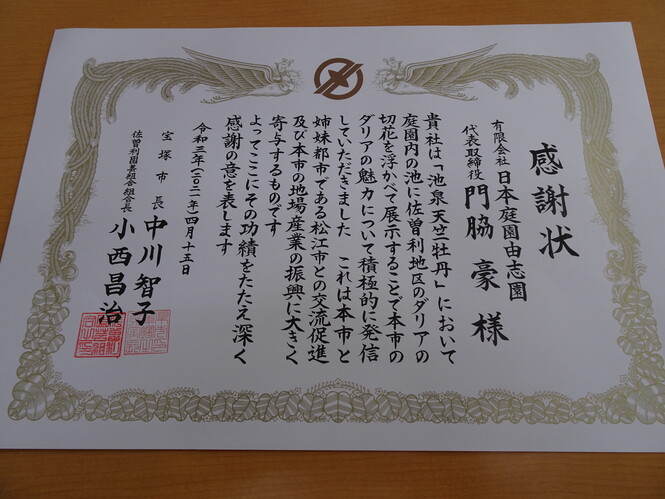 感謝状
有限会社 日本庭園由志園
代表取締役 門脇 豪 様
貴社は「池泉 天竺牡丹」において
庭園内の池に佐曽利地区のダリアの
切花を浮かべて展示することで本市の
ダリアの魅力について積極的に発信
していただきました これは本市と
姉妹都市である松江市との交流促進
及び本市の地場産業の振興に大きく
寄与するものです
よってここにその功績をたたえ深く
感謝の意を表します
令和三年(二〇二一年)四月十五日
宝塚市長 中川智子
佐曽利園芸組合組合長 小西昌治